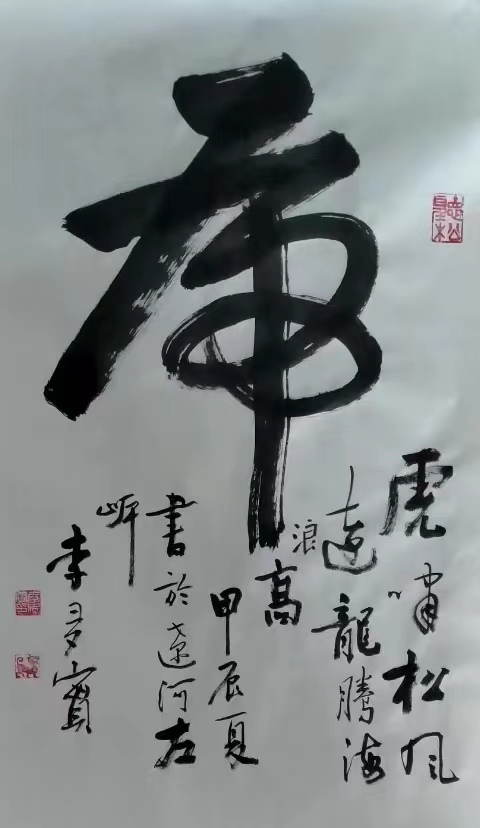 虎
虎啸松风
远龍騰海
浪高
甲辰夏
書於遼河左
岸
李多寶